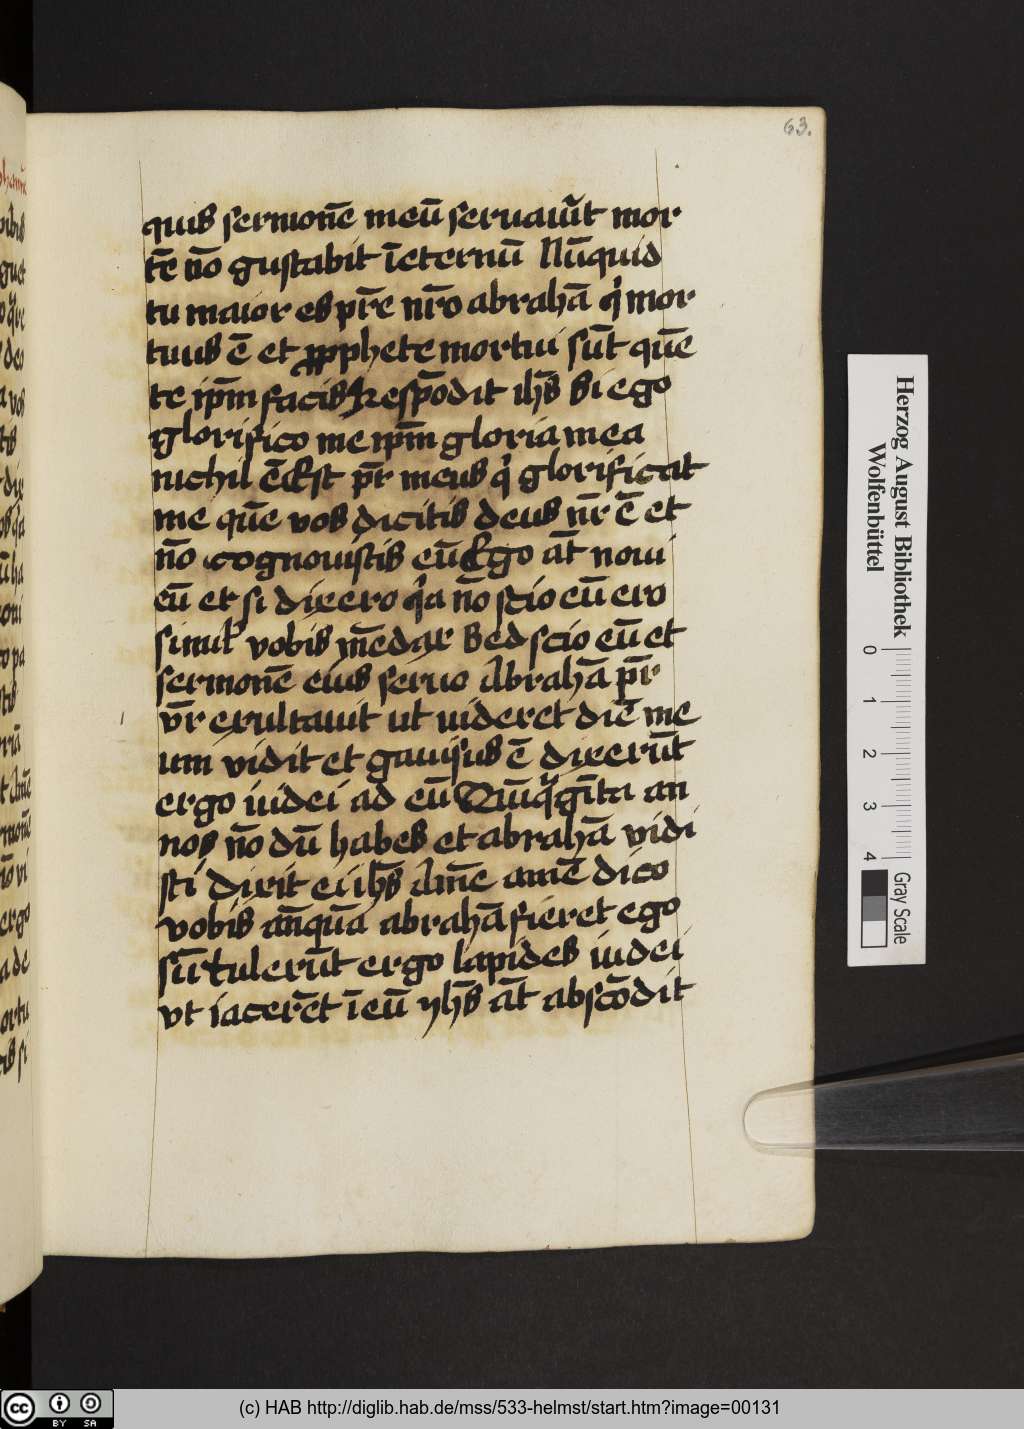 63.
quis sermonē meū seruau̾it mor
tē nō gustabit īeternū Nūquid
tu maior es pr̄e nr̄o abrahā qͥ mor
tuus ē et ꝓpphete mortui sūt quē
te ip̄m facis Respōdit ih̄s Si ego
glorifico me ip̄m gloria mea
nichil ē Est pr̄ meus qͥ glorificat
me quē vos dicitis deus nr̄ ē et
nō cognouistis eū Ego āt noui
eū et si dixero qͥa nō scio eū ero
simil̛ vobis mēdax Sed scio eū et
sermonē eius seruo Abrahā pr̄
vr̄ exultauit ut uideret diē me
um vidit et gauisus ē dixerūt
ergo iudei ad eū Quīqͣgīta an
nos nō dū habes et abrahā vidi
sti Dixit ei ih̄s Amē amē dico
vobis an̄quā abrahā fieret ego
sū Tulerūt ergo lapides iudei
vt iacerēt ī eū yh̄s āt abscōdit
Herzog August Bibliothek
Wolfenbüttel
0 1 2 3 4
Gray Scale
cc BY SA
(c) HAB http://diglib.hab.de/mss/533-helmst/start.htm?image=00131